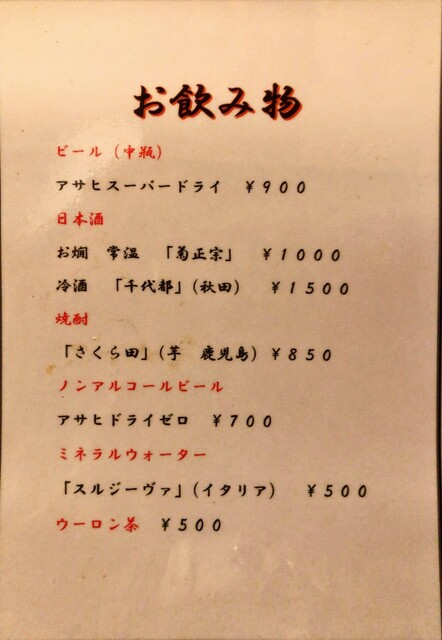 お飲み物
ビール（中瓶）
アサヒスーパードライ　￥９００
日本酒
お燗　常温　「菊正宗」　￥１０００
冷酒　「千代都」（秋田）　￥１５００
焼酎
「さくら田」（芋　鹿児島）￥８５０
ノンアルコールビール
アサヒドライゼロ　￥７００
ミネラルウォーター
「スルジーヴァ」（イタリア）　￥５００
ウーロン茶　￥５００